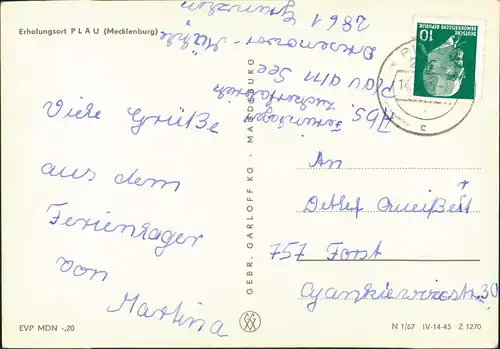 Erholungsort PLAU (Mecklenburg)
Viele Grüße
aus dem
Ferienlager
von
Martina
EVP MDN -,20
GEBR. GARLOFF KG · MAGDEBURG
Abs. Ferienlager
Plau am See
2861
DEUTSCHE
DEMOKRATISCHE REPUBLIK
10
c
An
Detlef
757 Forst
30
N 1/67 IV-14-45 Z 1270